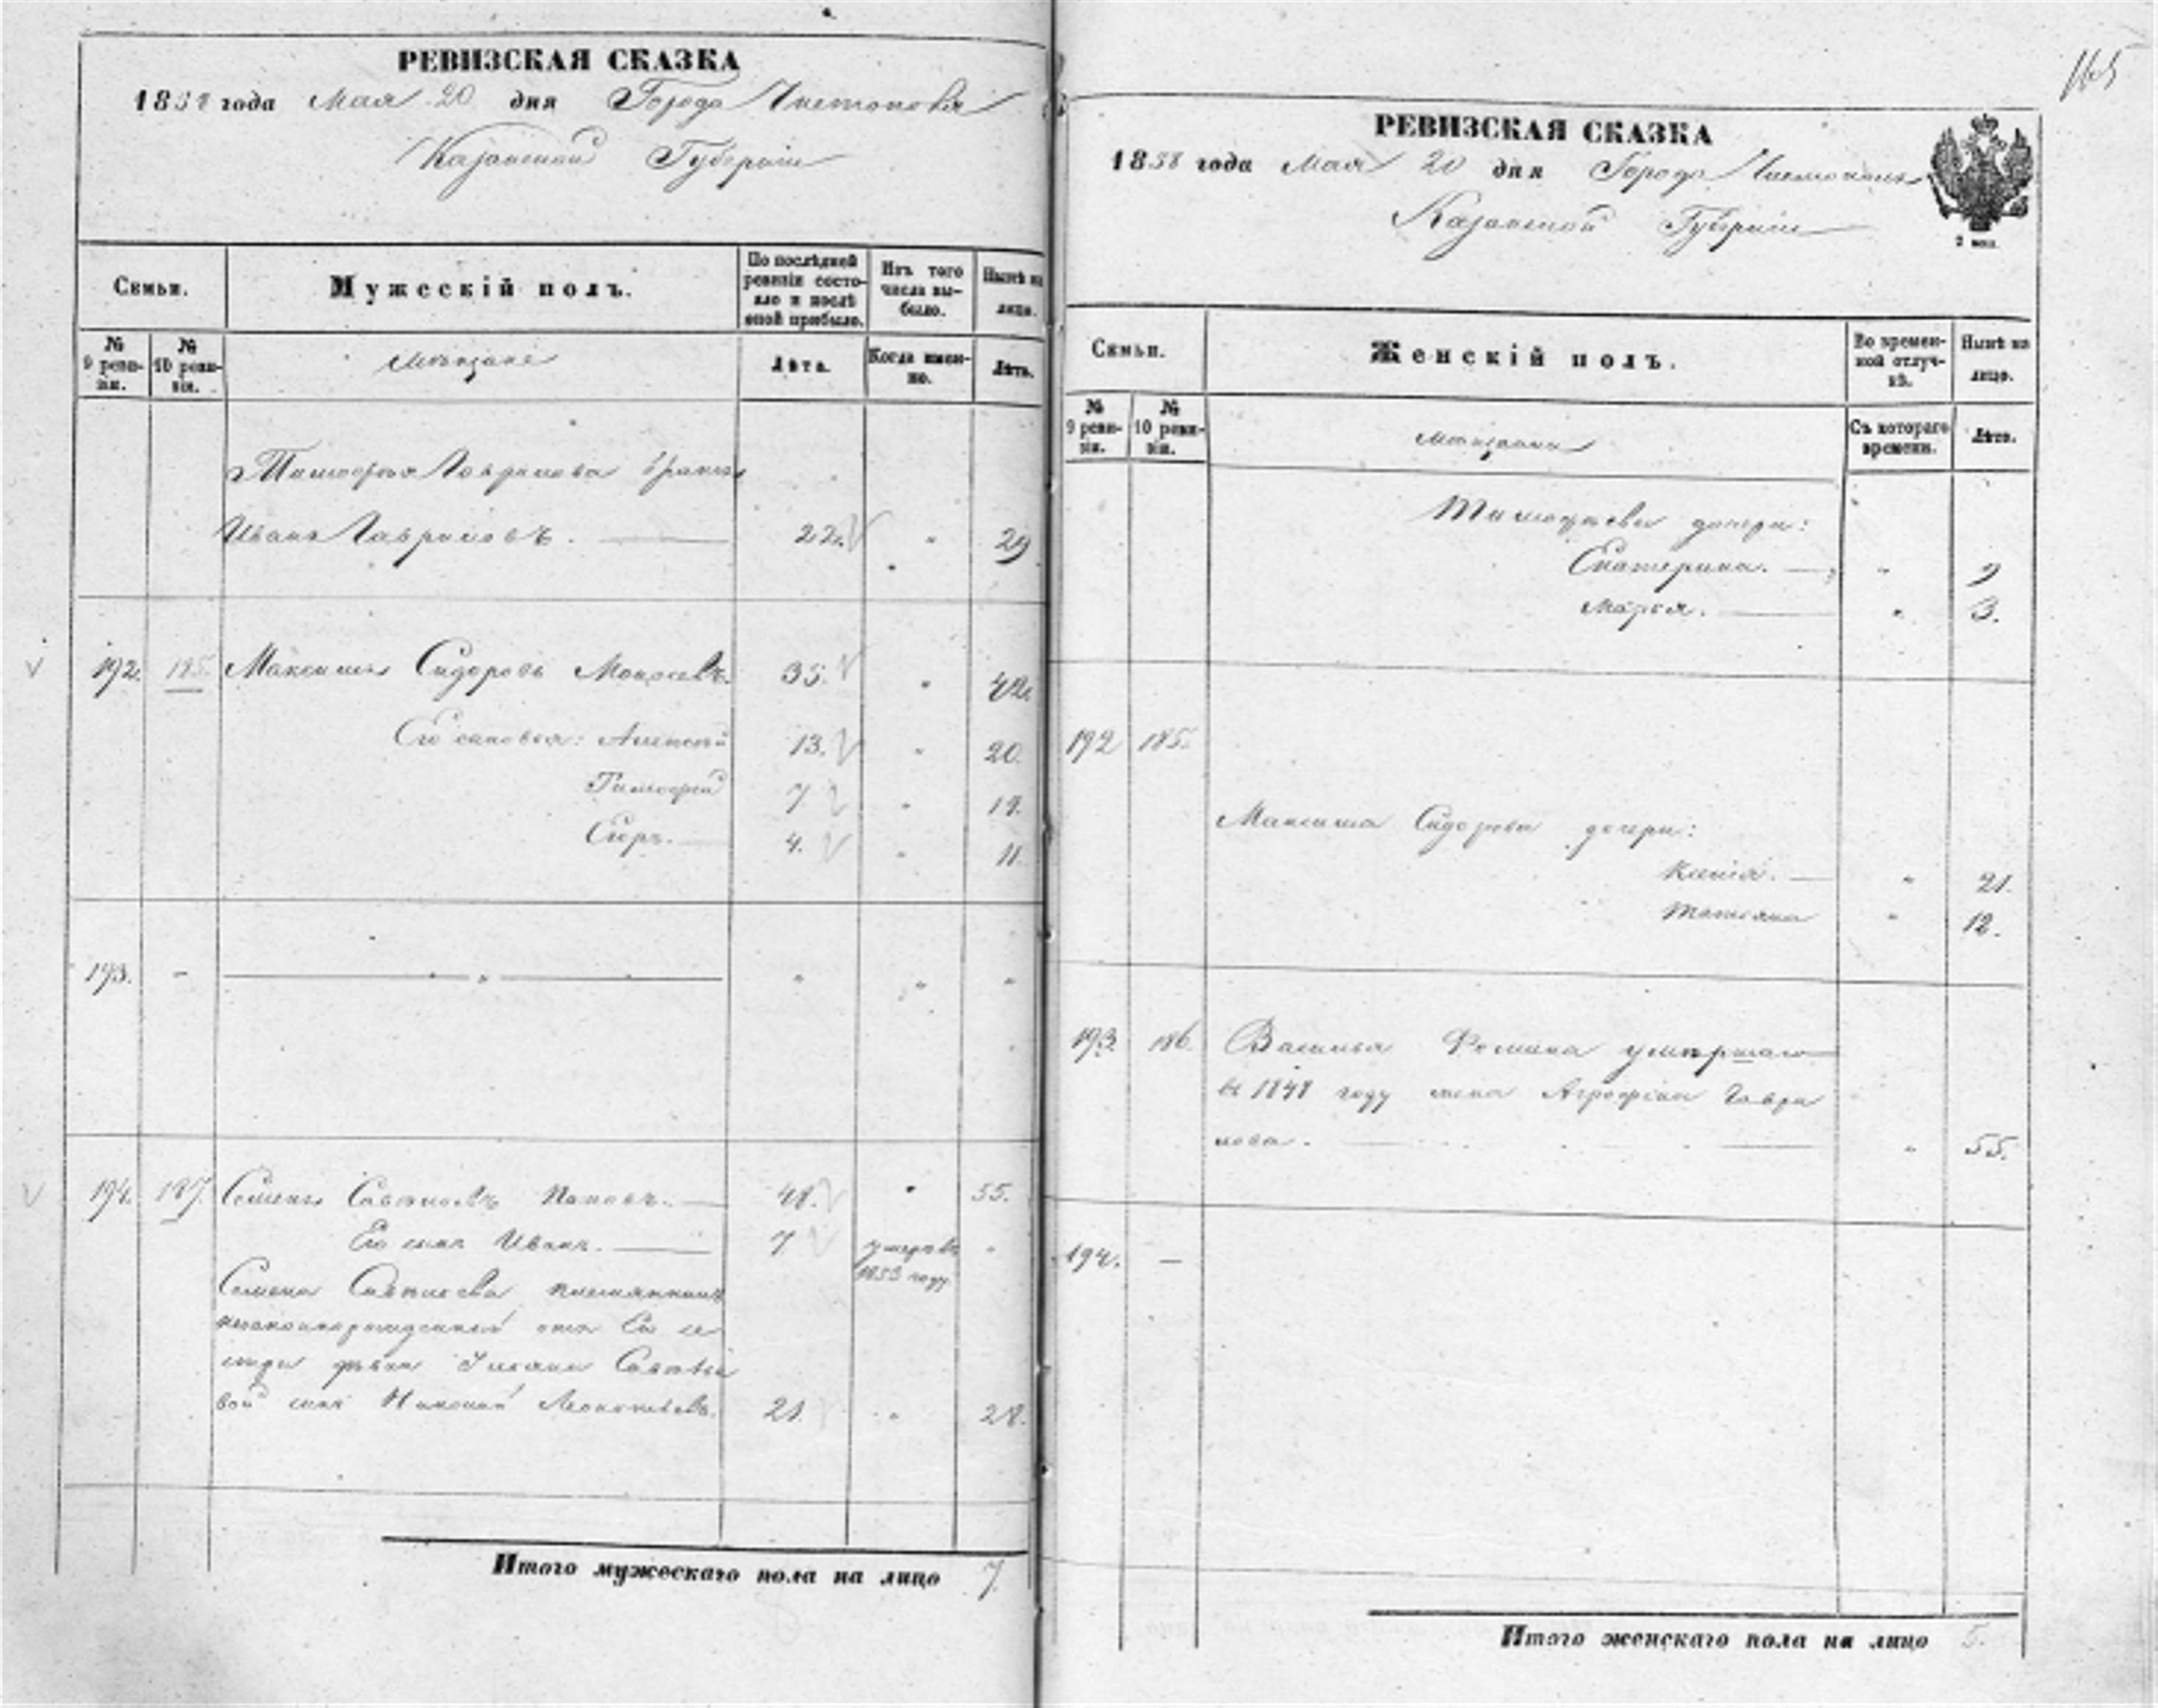 РЕВИЗСКАЯ СКАЗКА
1858 года Мая 20 дня Города Чистополя
Казанской Губернiи
Семьи.
Мужескiй полъ.
По послѣдней ревизiи состояло и послѣ оной прибыло.
Изъ того числа выбыло.
Нынѣ на лицо.
№ 9 ревизiи.
№ 10 ревизiи.
Мѣщане
Лѣта.
Когда именно.
Лѣта.
Тимофея Гаврилова братъ
Иванъ Гавриловъ. 22. " 29
192. 185. Максимъ Сидоровъ 35. " 42.
Его сыновья: Алексѣй 13. " 20.
Тимофей 7 " 14.
Егоръ. 4. " 11.
193. - " " " "
194. 187. Семенъ Савельевъ Поповъ. 48. " 55.
Его сынъ Иванъ. 7 умеръ въ 1853 году "
Семена Савельева племянникъ
незаконнорожденный отъ Его се
стры дѣвки Савельe
вой сынъ Николай Леонтьевъ. 21. " 28.
Итого мужескаго пола на лицо 7.
165
РЕВИЗСКАЯ СКАЗКА
1858 года Мая 20 дня Города Чистополя
Казанской Губернiи
2 коп.
Семьи.
Женскiй полъ.
Во временной отлучкѣ.
Нынѣ на лицо.
№ 9 ревизiи.
№ 10 ревизiи.
Мѣщанки
Съ котораго времени.
Лѣта.
Тимофеевы дочери:
Екатерина. " 9
Марья. " 3.
192 185.
Максима Сидорова дочери:
" 21.
Татьяна " 12.
193. 186. Василья Фомина умершаго
въ 1848 году жена Агрофена Гаври
лова. " 55.
194. —
Итого женскаго пола на лицо 5.